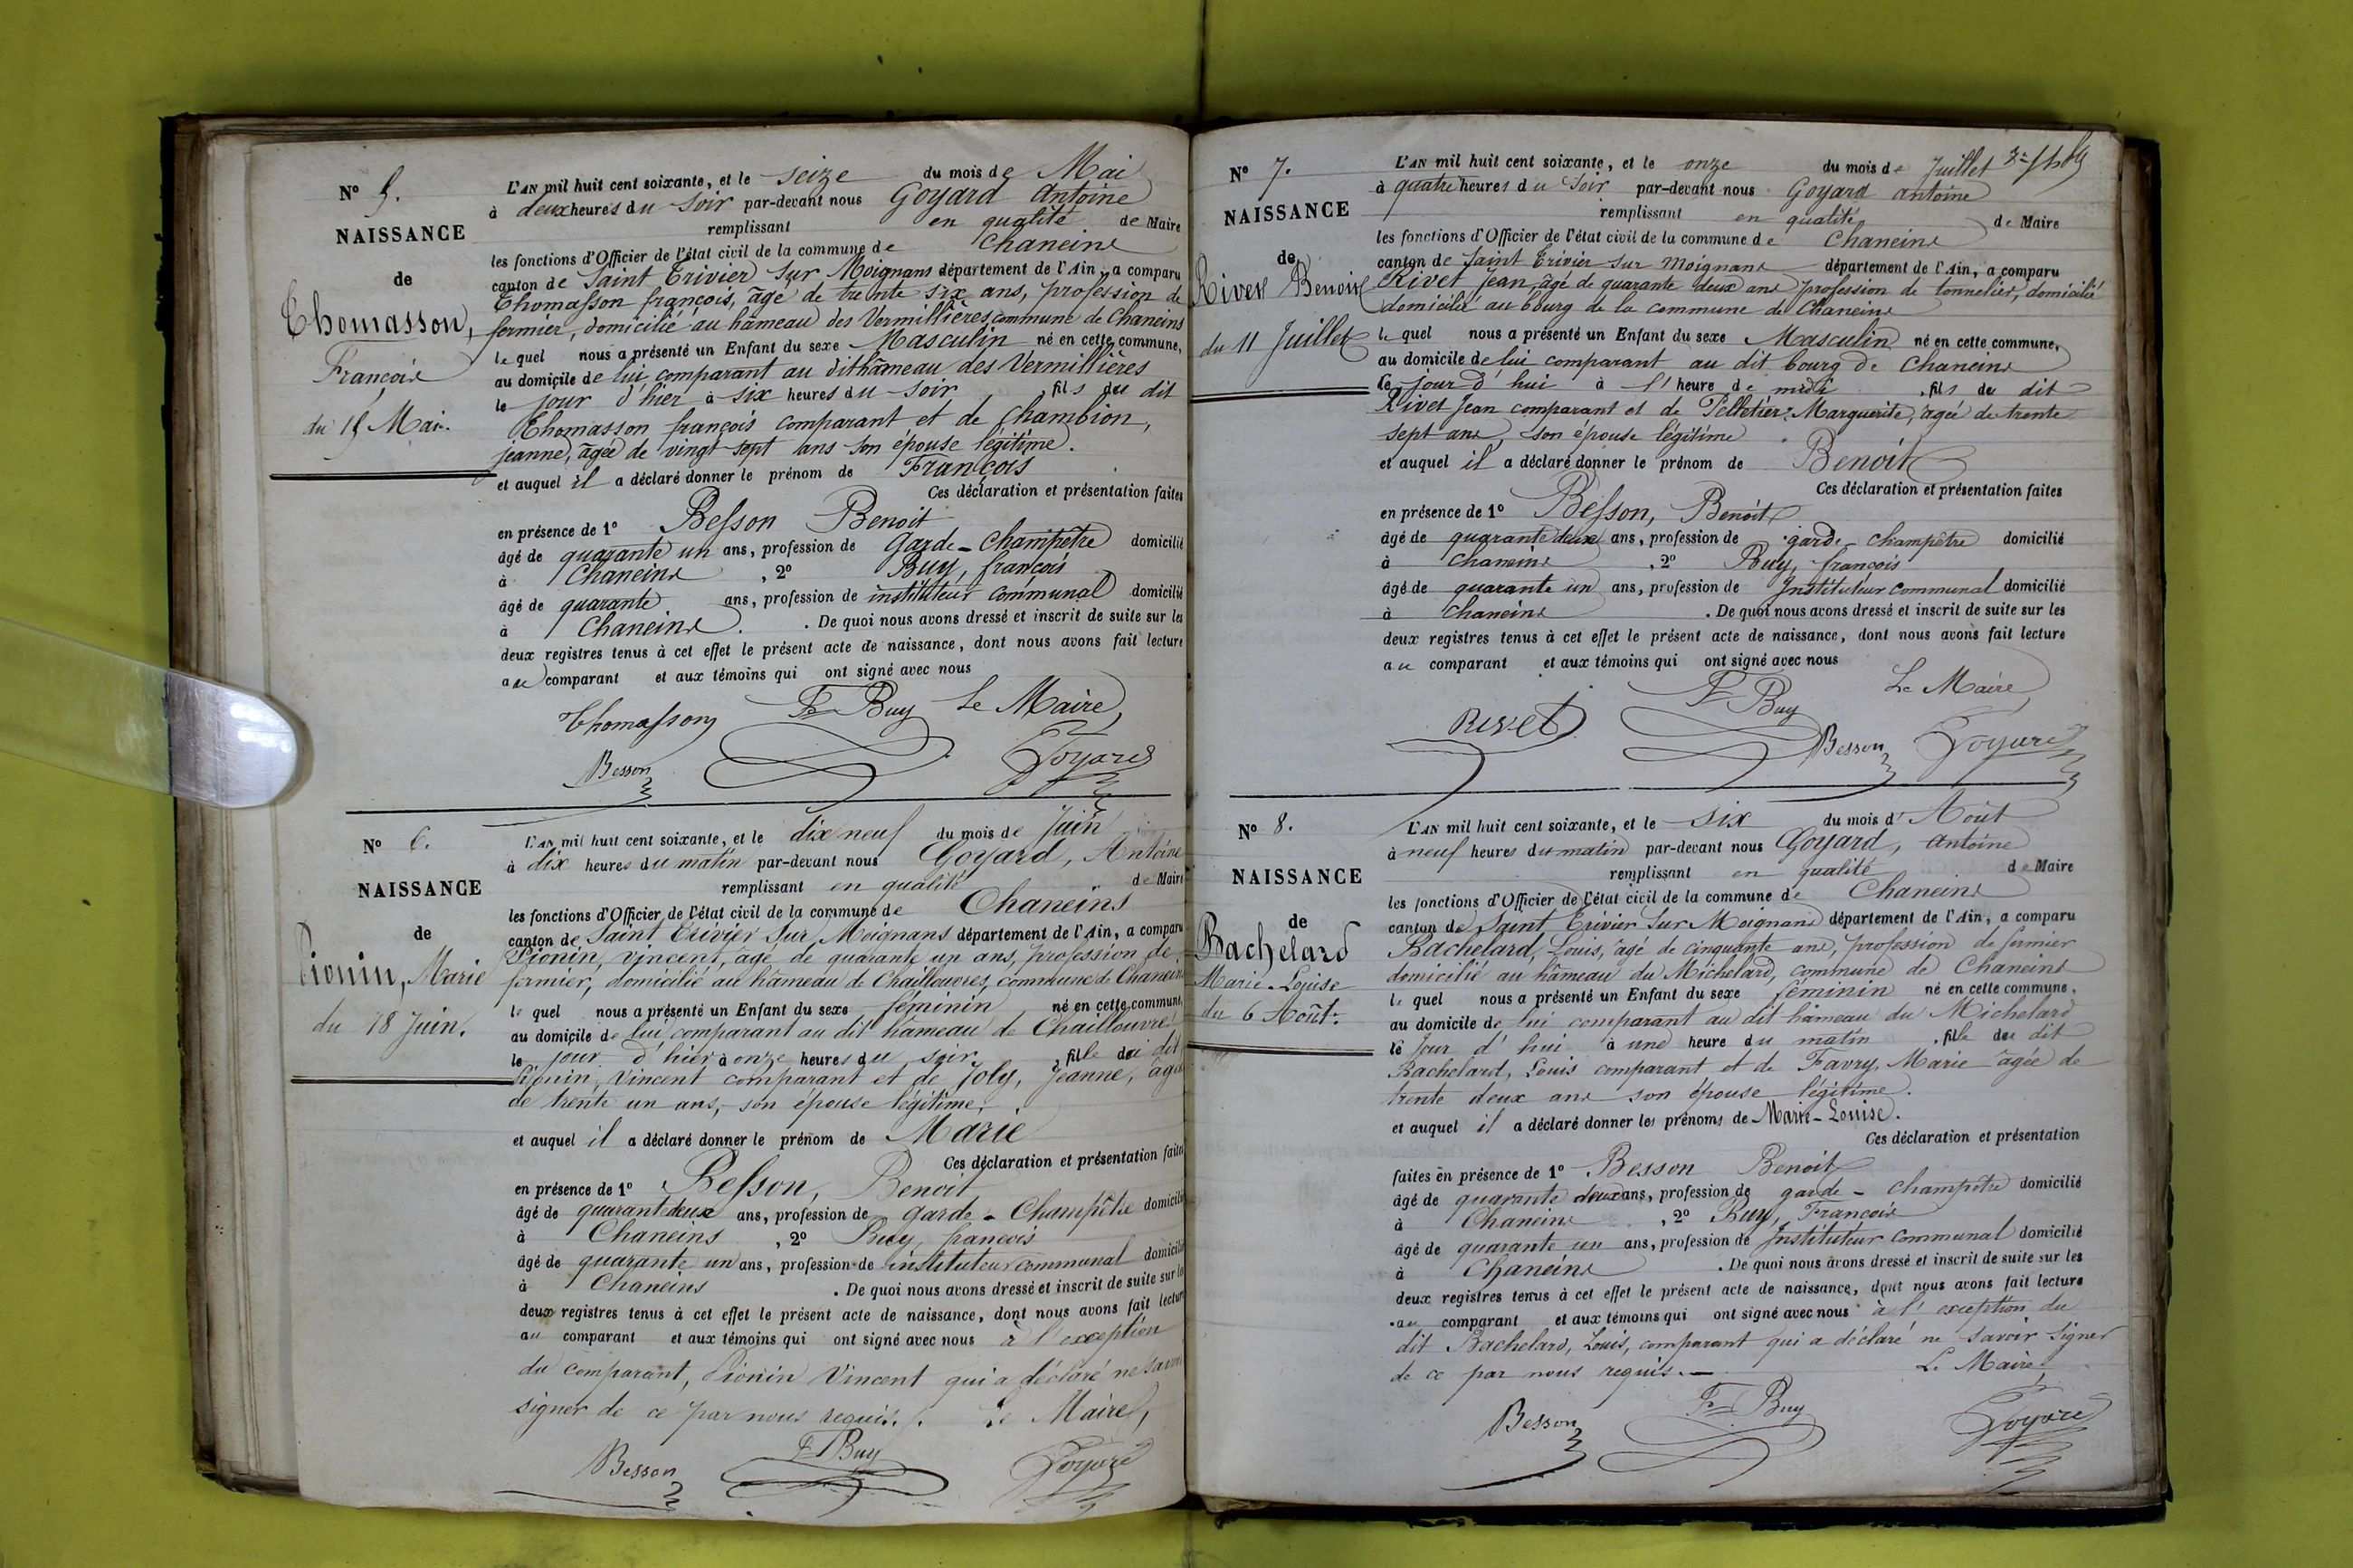 N° 5.
NAISSANCE
de
Thomasson,
François
du 15 Mai.
L'AN mil huit cent soixante, et le seize du mois de Mai
à deux heures du soir par-devant nous Goyard Antoine
remplissant en qualité de Maire
les fonctions d'Officier de l'état civil de la commune de Chaneins
canton de Saint Trivier sur Moignans département de l'Ain, a comparu
Thomasson françois, âgé de trente six ans, profession de
fermier, domicilié au hâmeau des Vermillières, commune de Chaneins
le quel nous a présenté un Enfant du sexe Masculin né en cette commune,
au domicile de lui comparant au dit hâmeau des Vermillières
le jour d'hier à six heures du soir, fils du dit
Thomasson françois comparant et de Chambion,
jeanne, âgée de vingt sept ans son épouse légitime.
et auquel il a déclaré donner le prénom de François
Ces déclaration et présentation faites
en présence de 1° Besson Benoit
âgé de quarante un ans, profession de Garde-Champêtre domicilié
à Chaneins, 2° Buy, françois
âgé de quarante ans, profession de instituteur communal domicilié
à Chaneins. De quoi nous avons dressé et inscrit de suite sur les
deux registres tenus à cet effet le présent acte de naissance, dont nous avons fait lecture
au comparant et aux témoins qui ont signé avec nous
Thomasson F Buy Le Maire,
Besson Goyard
N° 6.
NAISSANCE
de
Pionin, Marie
du 18 Juin.
L'AN mil huit cent soixante, et le dix neuf du mois de Juin
à dix heures du matin par-devant nous Goyard, Antoine
remplissant en qualité de Maire
les fonctions d'Officier de l'état civil de la commune de Chaneins
canton de Saint Trivier sur Moignans département de l'Ain, a comparu
Pionin, Vincent, âgé de quarante un ans, profession de
fermier, domicilié au hâmeau de Chaillouvres, commune de Chaneins
le quel nous a présenté un Enfant du sexe féminin né en cette commune,
au domicile de lui comparant au dit hâmeau de Chaillouvres
le jour d'hier à onze heures du soir, fille du dit
Pionin, Vincent comparant et de Joly, Jeanne, âgée
de trente un ans, son épouse légitime.
et auquel il a déclaré donner le prénom de Marie
Ces déclaration et présentation faites
en présence de 1° Besson, Benoit
âgé de quarante deux ans, profession de garde-Champêtre domicilié
à Chaneins, 2° Buy, francois
âgé de quarante un ans, profession de instituteur communal domicilié
à Chaneins. De quoi nous avons dressé et inscrit de suite sur les
deux registres tenus à cet effet le présent acte de naissance, dont nous avons fait lecture
au comparant et aux témoins qui ont signé avec nous à l'exception
du comparant, Pionin Vincent qui a déclaré ne savoir
signer de ce par nous requis. Le Maire,
Besson F Buy Goyard
N° 7.
NAISSANCE
de
Rivet Benoit
du 11 Juillet
L'AN mil huit cent soixante, et le onze du mois de Juillet
à quatre heures du soir par-devant nous Goyard antoine
remplissant en qualité de Maire
les fonctions d'Officier de l'état civil de la commune de Chaneins
canton de Saint Trivier sur Moignans département de l'Ain, a comparu
Rivet Jean, âgé de quarante deux ans profession de tonnelier, domicilié
domicilié au bourg de la commune de Chaneins
le quel nous a présenté un Enfant du sexe Masculin né en cette commune,
au domicile de lui comparant au dit bourg de Chaneins
le jour d'hui à l'heure de midi, fils du dit
Rivet Jean comparant et de Pelletier Marguerite, âgée de trente
sept ans, son épouse légitime.
et auquel il a déclaré donner le prénom de Benoit
Ces déclaration et présentation faites
en présence de 1° Besson, Benoit
âgé de quarante deux ans, profession de garde-champêtre domicilié
à Chaneins, 2° Buy, françois
âgé de quarante un ans, profession de Instituteur communal domicilié
à Chaneins. De quoi nous avons dressé et inscrit de suite sur les
deux registres tenus à cet effet le présent acte de naissance, dont nous avons fait lecture
au comparant et aux témoins qui ont signé avec nous
Le Maire
Rivet F Buy Besson Goyard
N° 8.
NAISSANCE
de
Bachelard
Marie-Louise
du 6 Août.
L'AN mil huit cent soixante, et le six du mois d'Août
à neuf heures du matin par-devant nous Goyard, antoine
remplissant en qualité de Maire
les fonctions d'Officier de l'état civil de la commune de Chaneins
canton de Saint Trivier sur Moignans département de l'Ain, a comparu
Bachelard, Louis, âgé de cinquante ans, profession de fermier
domicilié au hâmeau du Michelard, commune de Chaneins
le quel nous a présenté un Enfant du sexe féminin né en cette commune,
au domicile de lui comparant au dit hâmeau du Michelard
le jour d'hui à une heure du matin, fille du dit
Bachelard, Louis comparant et de Favry, Marie âgée de
trente deux ans son épouse légitime.
et auquel il a déclaré donner les prénoms de Marie-Louise.
Ces déclaration et présentation
faites en présence de 1° Besson Benoit
âgé de quarante deux ans, profession de garde-champêtre domicilié
à Chaneins, 2° Buy, François
âgé de quarante un ans, profession de Instituteur communal domicilié
à Chaneins. De quoi nous avons dressé et inscrit de suite sur les
deux registres tenus à cet effet le présent acte de naissance, dont nous avons fait lecture
au comparant et aux témoins qui ont signé avec nous à l'exception du
dit Bachelard, Louis, comparant qui a déclaré ne savoir signer
de ce par nous requis. Le Maire,
Besson F Buy Goyard